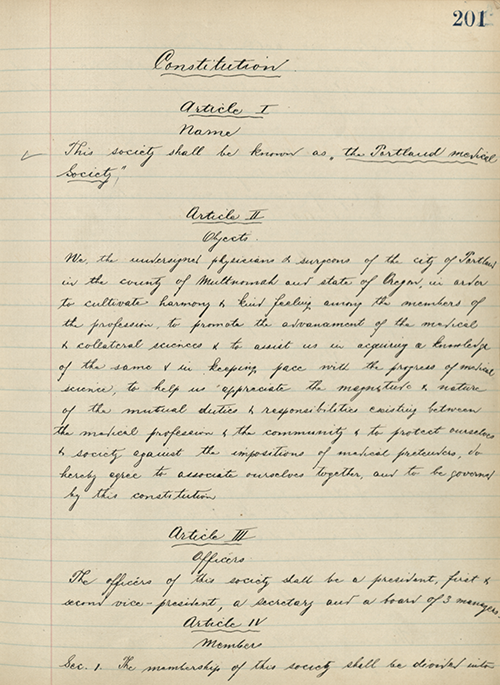 201
Constitution
Article I
Name
This society shall be known as "the Portland medical
Society,"
Article II
Objects.
We, the undersigned physicians & surgeons of the city of Portland
in the county of Multnomah and state of Oregon, in order
to cultivate harmony & kind feeling among the members of
the profession, to promote the advancement of the medical
& collateral sciences & to assist us in acquiring a knowledge
of the same & in keeping pace with the progress of medical
science, to help us appreciate the magnitude & nature
of the mutual duties & responsibilities existing between
the medical profession & the community & to protect ourselves
& society against the impositions of medical pretenders, do
hereby agree to associate ourselves together, and to be governed
by this constitution
Article III
Officers
The officers of this society shall be a president, first &
second vice-president, a secretary and a board of 3 managers.
Article IV
Members
Sec. 1. The membership of this society shall be divided into